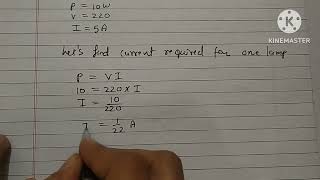 P = 10W
V = 220
I = 5A
KINEMASTER
Let's find current required for one lamp
P = VI
10 = 220 x I
I = 10/220
I = 1/22 A